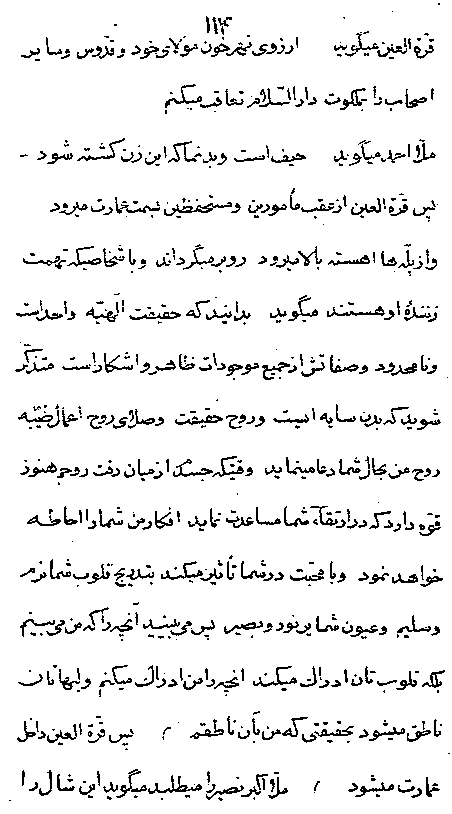 ۱۱۴
قرة العین میگوید ارزوی نیم خون مولای خود و قدّوس و سایر
اصحاب را بملکوت دارالسّلام تعاقب میکنم
ملّا احمد میگوید حیف است و بد نما که این زن کشته شود -
پس قرّة العین از عقب مأمورین و مستحفظین بسمت عمارت میرود
و از پلّه ها اهسته بالا میرود رو بر میگرداند و با شخاصیکه تهمت
زننده او هستند میگوید بدانید که حقیقت الهیّه واحد است
و نامحدود و صفاتش از جمیع موجودات ظاهر و اشکار است متذکّر
شوید که بدن سایه ایست و روح حقیقت و صلای روح اعمال طیّبه
روح من بحال شما دعا مینماید وقتیکه جسد از میان رفت روحم هنوز
قوّه دارد که در ارتقآء شما مساعدت نماید افکار من شما را احاطه
خواهد نمود و با محبّت در شما تأثیر میکند بتدریج قلوب شما نرم
و سلیم و عیون شما پر نور و بصیر پس می بینید آنچه را که من می بینم
بلکه قلوب تان ادراک میکند انچه را من ادراک میکنم و لبهاتان
ناطق میشود بحقیقتی که من بآن ناطقم / پس قرّة العین داخل
عمارت میشود / ملّا اکبر نصیر را میطلبد میگوید این شال را